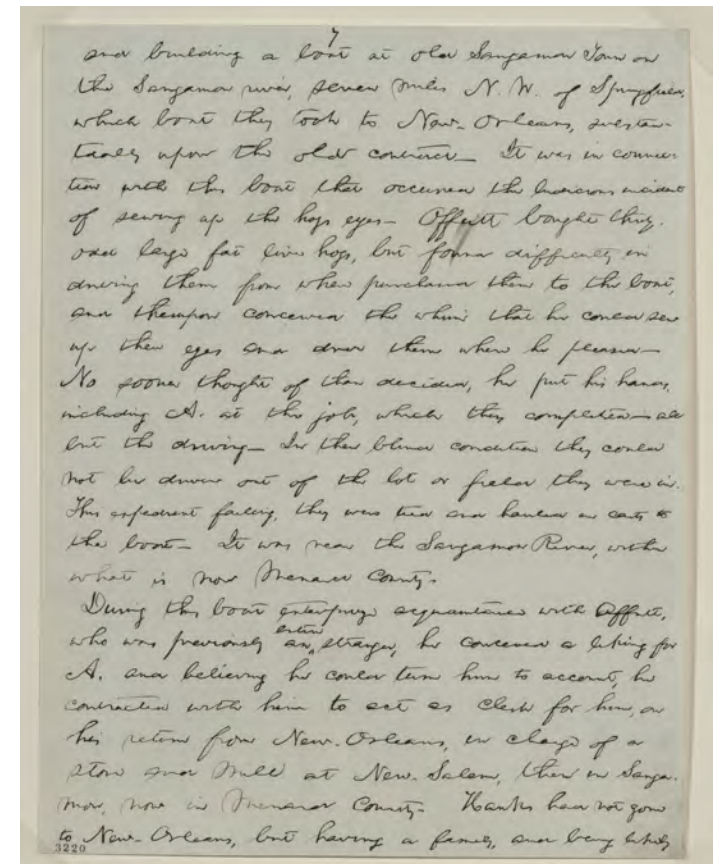 7
and building a boat at old Sangamon Town on
the Sangamon river, seven miles N.W. of Springfield,
which boat they took to New-Orleans, substan-
tially upon the old contract— It was in connec-
tion with this boat that occurred the ludicrous incident
of sewing up the hogs eyes— Offutt bought thirty-
odd large fat live hogs, but found difficulty in
driving them from where purchased them to the boat,
and thereupon conceived the whim that he could sew
up their eyes and drive them where he pleased—
No sooner thought of than decided, he put his hands,
including A. at the job, which they completed—all
but the driving— In their blind condition they could
not be driven out of the lot or field they were in.
This expedient failing, they were tied and hauled on carts to
the boat— It was near the Sangamon River, within
what is now Menard County.
During this boat enterprize acquaintance with Offutt,
who was previously an entire stranger, he conceived a liking for
A. and believing he could turn him to account, he
contracted with him to act as clerk for him, on
his return from New-Orleans, in charge of a
store and Mill at New-Salem, then in Sanga-
mon, now in Menard County— Hanks had not gone
to New-Orleans, but having a family, and being likely
3220